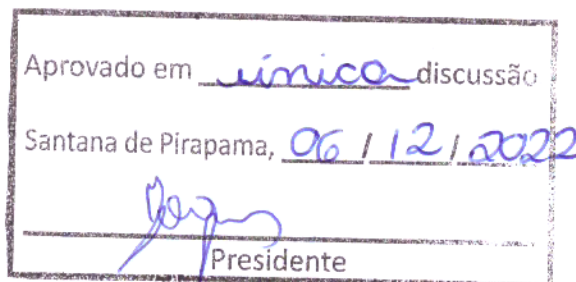 Aprovado em única discussão
Santana de Pirapama, 06 / 12 / 2022
Presidente